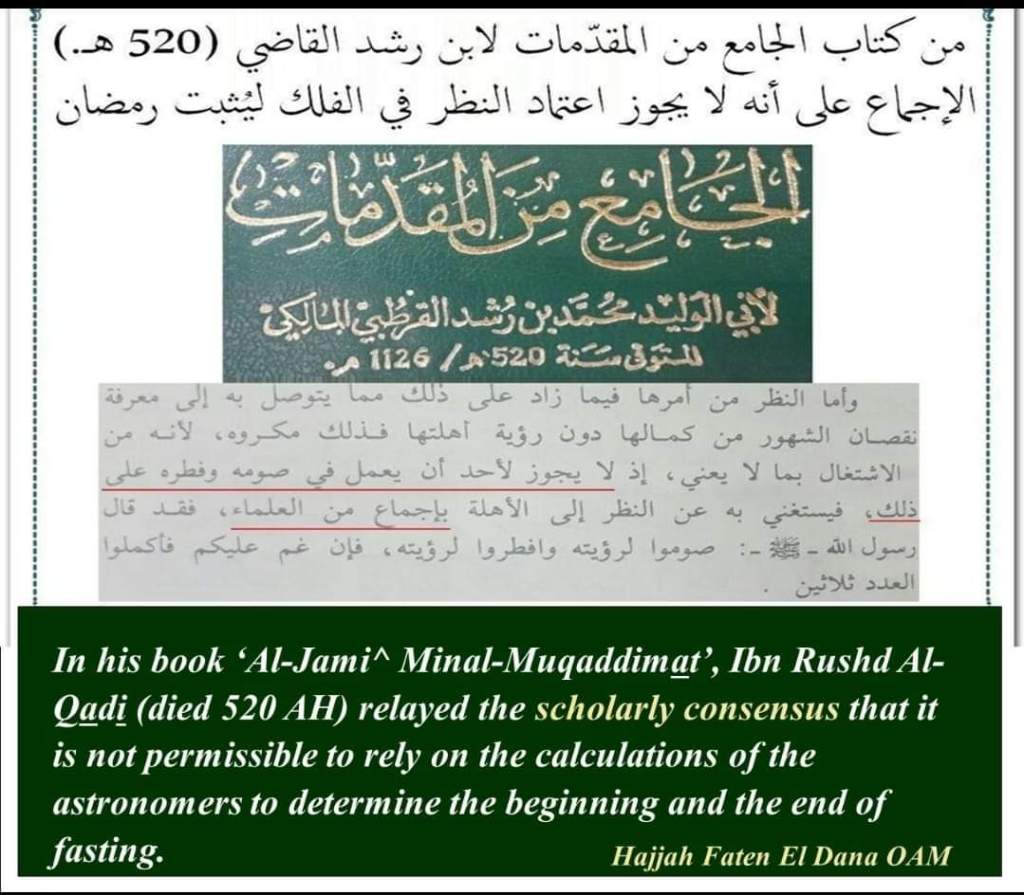 من كتاب الجامع من المقدّمات لابن رشد القاضي (520 هـ.)
الإجماع على أنه لا يجوز اعتماد النظر في الفلك ليُثبت رمضان
الجَامِع مِنَ المُقَدِّمَاتِ
لأبي الوَليْد مُحَمَّد بن رُشد القرطُبي المالِكي
المتوفى سَنة 520هـ/ 1126 م.
وأما النظر من أمرها فيما زاد على ذلك مما يتوصل به إلى معرفة
نقصان الشهور من كمالها دون رؤية أهلتها فذلك مكروه، لأنه من
الاشتغال بما لا يعني، إذ لا يجوز لأحد أن يعمل في صومه وفطره على
ذلك، فيستغني به عن النظر إلى الأهلة بإجماع من العلماء، فقد قال
رسول الله - ﷺ -: صوموا لرؤيته وافطروا لرؤيته، فإن غم عليكم فأكملوا
العدد ثلاثين .
In his book ‘Al-Jami^ Minal-Muqaddimat’, Ibn Rushd Al-
Qadi (died 520 AH) relayed the scholarly consensus that it
is not permissible to rely on the calculations of the
astronomers to determine the beginning and the end of
fasting.
Hajjah Faten El Dana OAM